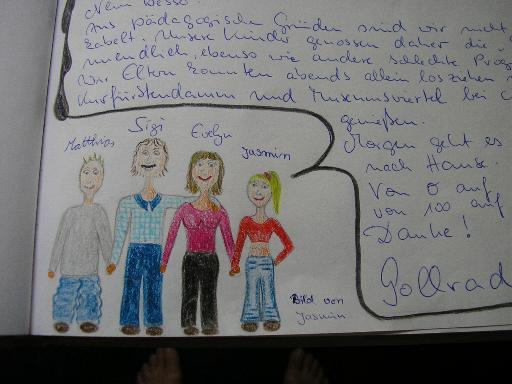 Nein besser
Aus pädagogischen Gründen sind wir nicht
kabelt. Unsere Kinder genossen daher die
unendlich, ebenso wie andere schlechte Prog
Wir Eltern konnten abends allein losziehen
Kurfürstendamm und Museumsviertel bei
genießen.
Morgen geht es
nach Hause.
Von 0 auf
von 100 auf
Danke!
Gollrad
Matthias
Sigi
Evelyn
Jasmin
Bild von
Jasmin